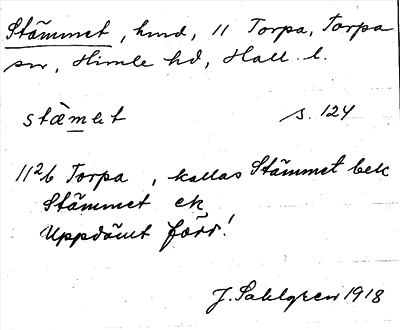 Stämmet, hmd, 11 Torpa, Torpa
sn, Himle hd, Hall. l.
stæmet s. 124
11²b Torpa, kallas Stämmet bek
Stämmet ek
Uppdämt förr!
J. Sahlgren 1918